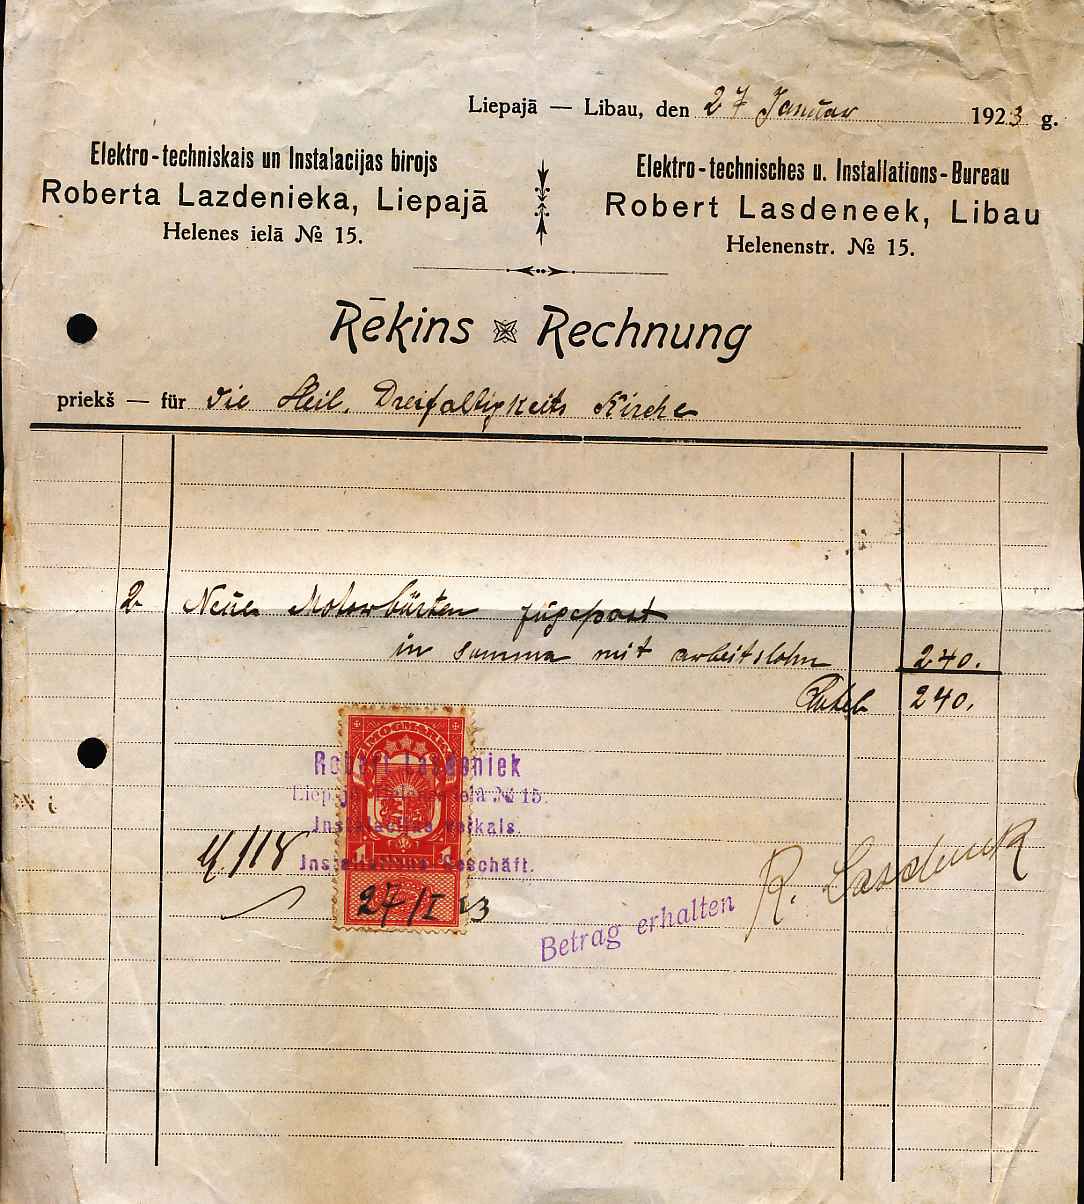 Liepajā — Libau, den 27 Januar 1923 g.
Elektro-techniskais un Instalacijas birojs
Roberta Lazdenieka, Liepajā
Helenes ielā № 15.
Elektro-technisches u. Installations-Bureau
Robert Lasdeneek, Libau
Helenenstr. № 15.
Rēkins Rechnung
priekš — für die Heil. Dreifaltigkeits Kirche
2 Neue Motorbürsten zugepast
in summa mit arbeitslohn 240.
240.
ZIMOGMARKA
Robert Lasdeniek
Liepajā, ielā № 15.
Instalacijas veikals.
1 1
Installations Geschäft.
118
27/I 23
Betrag erhalten
R. Lasdeneek